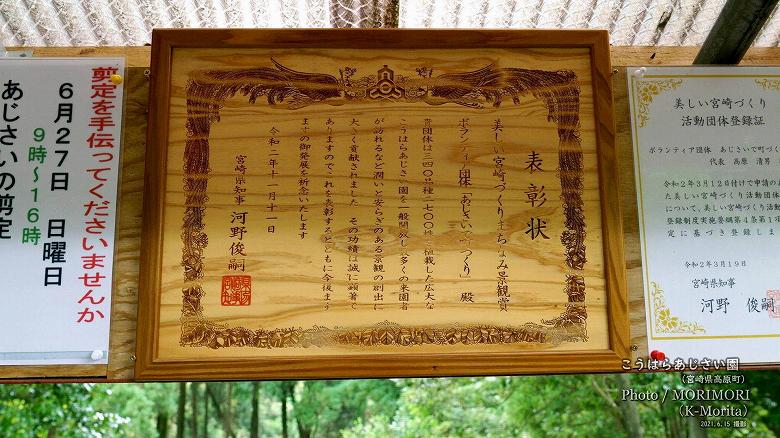 剪定を手伝ってくださいませんか
6月27日 日曜日
9時～16時
あじさいの剪定
表彰状
美しい宮崎づくりまちなみ景観賞
ボランティア団体「あじさいで町づくり」殿
貴団体は三四〇品種一七〇〇株を植栽した広大な
こうはらあじさい園を一般開放し多くの来園者
が訪れるなど潤いと安らぎのある景観の創出に
大きく貢献されました その功績は誠に顕著で
ありますのでこれを表彰するとともに今後ます
ますの御発展を祈念いたします
令和二年十一月十一日
宮崎県知事 河野俊嗣
美しい宮崎づくり
活動団体登録証
ボランティア団体 あじさいで町づく
代表 高原 清男
令和2年3月12日付けで申請の
た美しい宮崎づくり活動団体
について、美しい宮崎づくり活動
登録制度実施要綱第4条第1項
定に基づき登録しま
令和2年3月19日
宮崎県知事
河野 俊嗣
こうはらあじさい園
(宮崎県高原町)
Photo / MORIMORI
(K-Morita)
2021.6.15 撮影